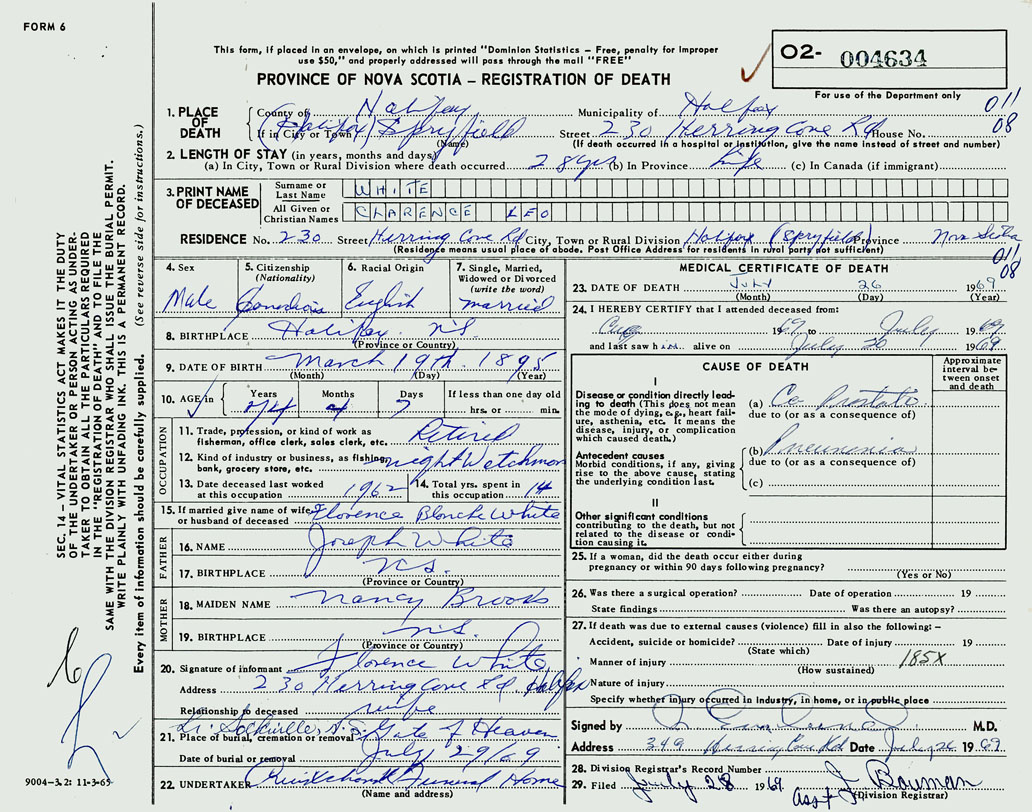 FORM 6
This form, if placed in an envelope, on which is printed "Dominion Statistics – Free, penalty for improper
use $50," and properly addressed will pass through the mail "FREE"
PROVINCE OF NOVA SCOTIA – REGISTRATION OF DEATH
O2- 004634
For use of the Department only
011
08
1. PLACE OF DEATH
County of Halifax Municipality of Halifax
If in City or Town (Halifax) Spryfield Street 230 Herring Cove Rd House No.
(Name) (If death occurred in a hospital or institution, give the name instead of street and number)
2. LENGTH OF STAY (in years, months and days)
(a) In City, Town or Rural Division where death occurred 28 yrs (b) In Province Life (c) In Canada (if immigrant)
3. PRINT NAME OF DECEASED
Surname or Last Name WHITE
All Given or Christian Names CLARENCE LEO
RESIDENCE No. 230 Street Herring Cove Rd City, Town or Rural Division Halifax (Spryfield) Province Nova Scotia
(Residence means usual place of abode. Post Office Address for residents in rural parts not sufficient)
011
08
4. Sex Male
5. Citizenship (Nationality) Canadian
6. Racial Origin English
7. Single, Married, Widowed or Divorced (write the word) married
8. BIRTHPLACE Halifax N.S.
(Province or Country)
9. DATE OF BIRTH March 19th 1895
(Month) (Day) (Year)
10. AGE in Years 74 Months 4 Days 7 If less than one day old
hrs. or min.
OCCUPATION
11. Trade, profession, or kind of work as fisherman, office clerk, sales clerk, etc. Retired
12. Kind of industry or business, as fishing, bank, grocery store, etc. night Watchman
13. Date deceased last worked at this occupation 1962
14. Total yrs. spent in this occupation 14
15. If married give name of wife or husband of deceased Florence Blanche White
FATHER
16. NAME Joseph White
17. BIRTHPLACE N.S.
(Province or Country)
MOTHER
18. MAIDEN NAME Nancy Brooks
19. BIRTHPLACE N.S.
(Province or Country)
20. Signature of informant Florence White
Address 230 Herring Cove Rd Halifax
Relationship to deceased wife
Sackville, N.S.
21. Place of burial, cremation or removal Gate of Heaven
Date of burial or removal July 29/69
22. UNDERTAKER Funeral Home
(Name and address)
MEDICAL CERTIFICATE OF DEATH
23. DATE OF DEATH JULY 26 1969
(Month) (Day) (Year)
24. I HEREBY CERTIFY that I attended deceased from:
1967 to July 1969
and last saw him alive on July 26 1969
CAUSE OF DEATH
Approximate interval between onset and death
I
Disease or condition directly leading to death (This does not mean the mode of dying, e.g., heart failure, asthenia, etc. It means the disease, injury, or complication which caused death.)
(a) Ca Prostate
due to (or as a consequence of)
Antecedent causes
Morbid conditions, if any, giving rise to the above cause, stating the underlying condition last.
(b) Pneumonia
due to (or as a consequence of)
(c)
II
Other significant conditions
contributing to the death, but not related to the disease or condition causing it.
25. If a woman, did the death occur either during
pregnancy or within 90 days following pregnancy?
(Yes or No)
26. Was there a surgical operation? Date of operation 19
State findings Was there an autopsy?
27. If death was due to external causes (violence) fill in also the following:–
Accident, suicide or homicide? Date of injury 19
(State which)
Manner of injury 185X
(How sustained)
Nature of injury
Specify whether injury occurred in industry, in home, or in public place
Signed by M.D.
Address 349 Herring Cove Rd Date July 26 1969
28. Division Registrar's Record Number
29. Filed July 28 1969 Asst J Bauman
(Division Registrar)
SEC. 14 – VITAL STATISTICS ACT MAKES IT THE DUTY
OF THE UNDERTAKER OR PERSON ACTING AS UNDER-
TAKER TO OBTAIN ALL THE PARTICULARS REQUIRED
IN THE "REGISTRATION OF DEATH" AND TO FILE THE
SAME WITH THE DIVISION REGISTRAR WHO SHALL ISSUE THE BURIAL PERMIT.
WRITE PLAINLY WITH UNFADING INK. THIS IS A PERMANENT RECORD.
Every item of information should be carefully supplied. (See reverse side for instructions.)
9004-3.2: 11-3-65